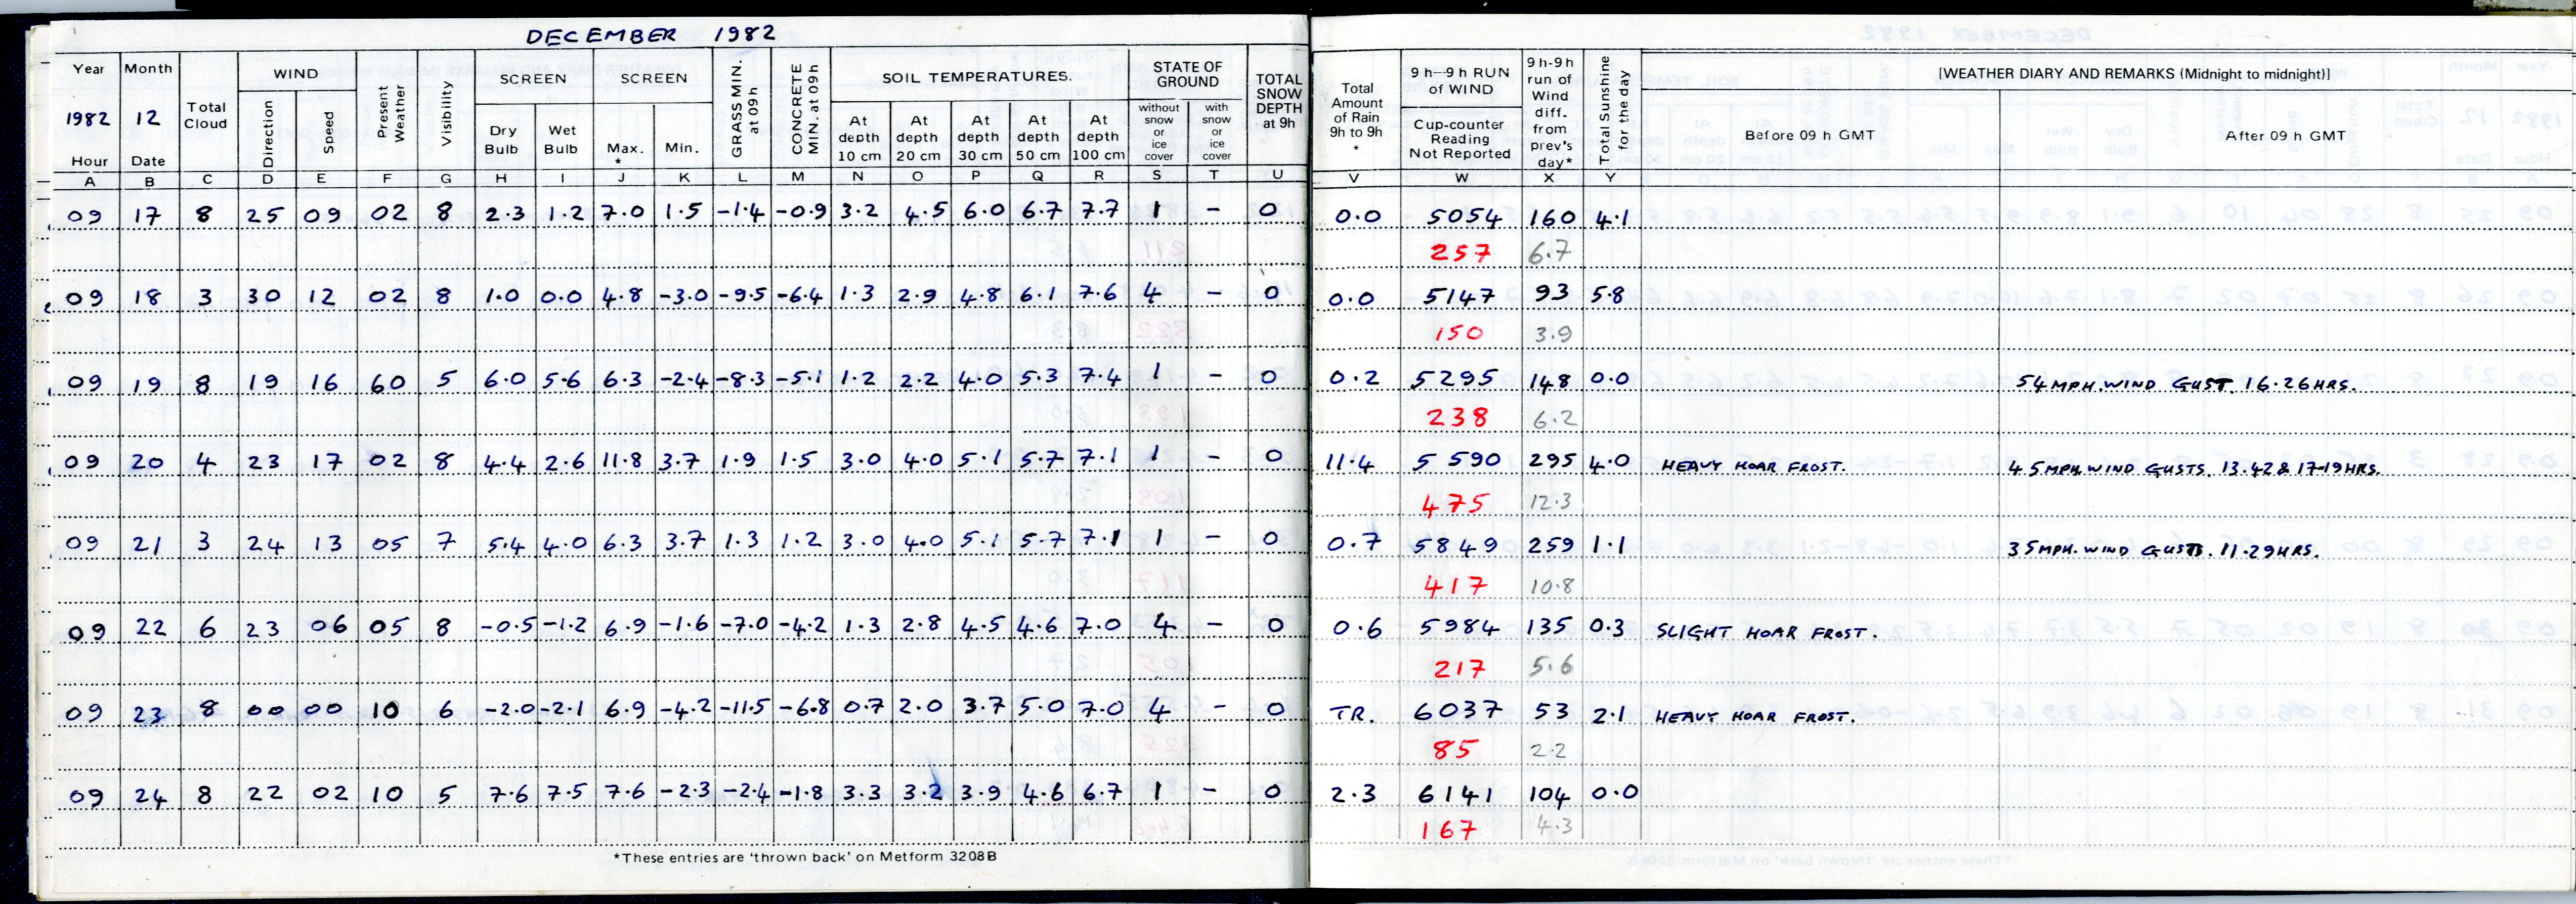 DECEMBER 1982
Year Month WIND SCREEN SCREEN SOIL TEMPERATURES. STATE OF GROUND TOTAL SNOW DEPTH at 9h
1982 12 Total Cloud Direction Speed Present Weather Visibility Dry Bulb Wet Bulb Max. * Min. GRASS MIN. at 09h CONCRETE MIN. at 09h At depth 10 cm At depth 20 cm At depth 30 cm At depth 50 cm At depth 100 cm without snow or ice cover with snow or ice cover
Hour Date
A B C D E F G H I J K L M N O P Q R S T U
09 17 8 25 09 02 8 2.3 1.2 7.0 1.5 -1.4 -0.9 3.2 4.5 6.0 6.7 7.7 1 - 0
09 18 3 30 12 02 8 1.0 0.0 4.8 -3.0 -9.5 -6.4 1.3 2.9 4.8 6.1 7.6 4 - 0
09 19 8 19 16 60 5 6.0 5.6 6.3 -2.4 -8.3 -5.1 1.2 2.2 4.0 5.3 7.4 1 - 0
09 20 4 23 17 02 8 4.4 2.6 11.8 3.7 1.9 1.5 3.0 4.0 5.1 5.7 7.1 1 - 0
09 21 3 24 13 05 7 5.4 4.0 6.3 3.7 1.3 1.2 3.0 4.0 5.1 5.7 7.1 1 - 0
09 22 6 23 06 05 8 -0.5 -1.2 6.9 -1.6 -7.0 -4.2 1.3 2.8 4.5 4.6 7.0 4 - 0
09 23 8 00 00 10 6 -2.0 -2.1 6.9 -4.2 -11.5 -6.8 0.7 2.0 3.7 5.0 7.0 4 - 0
09 24 8 22 02 10 5 7.6 7.5 7.6 -2.3 -2.4 -1.8 3.3 3.2 3.9 4.6 6.7 1 - 0
*These entries are 'thrown back' on Metform 3208B
Total Amount of Rain 9h to 9h * 9 h-9 h RUN of WIND Cup-counter Reading Not Reported 9 h-9h run of Wind diff. from prev's day* Total Sunshine for the day [WEATHER DIARY AND REMARKS (Midnight to midnight)]
Before 09 h GMT After 09 h GMT
V W X Y
0.0 5054 160 4.1
257 6.7
0.0 5147 93 5.8
150 3.9
0.2 5295 148 0.0 54 MPH. WIND GUST. 16.26 HRS.
238 6.2
11.4 5590 295 4.0 HEAVY HOAR FROST. 45 MPH. WIND GUSTS. 13.42 & 17-19 HRS.
475 12.3
0.7 5849 259 1.1 35 MPH. WIND GUSTS. 11.29 HRS.
417 10.8
0.6 5984 135 0.3 SLIGHT HOAR FROST.
217 5.6
TR. 6037 53 2.1 HEAVY HOAR FROST.
85 2.2
2.3 6141 104 0.0
167 4.3